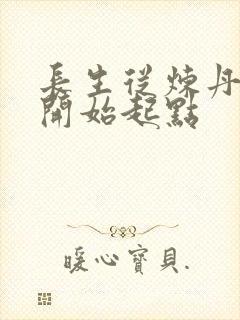 長生從煉丹
開始起點
暖心寶貝.